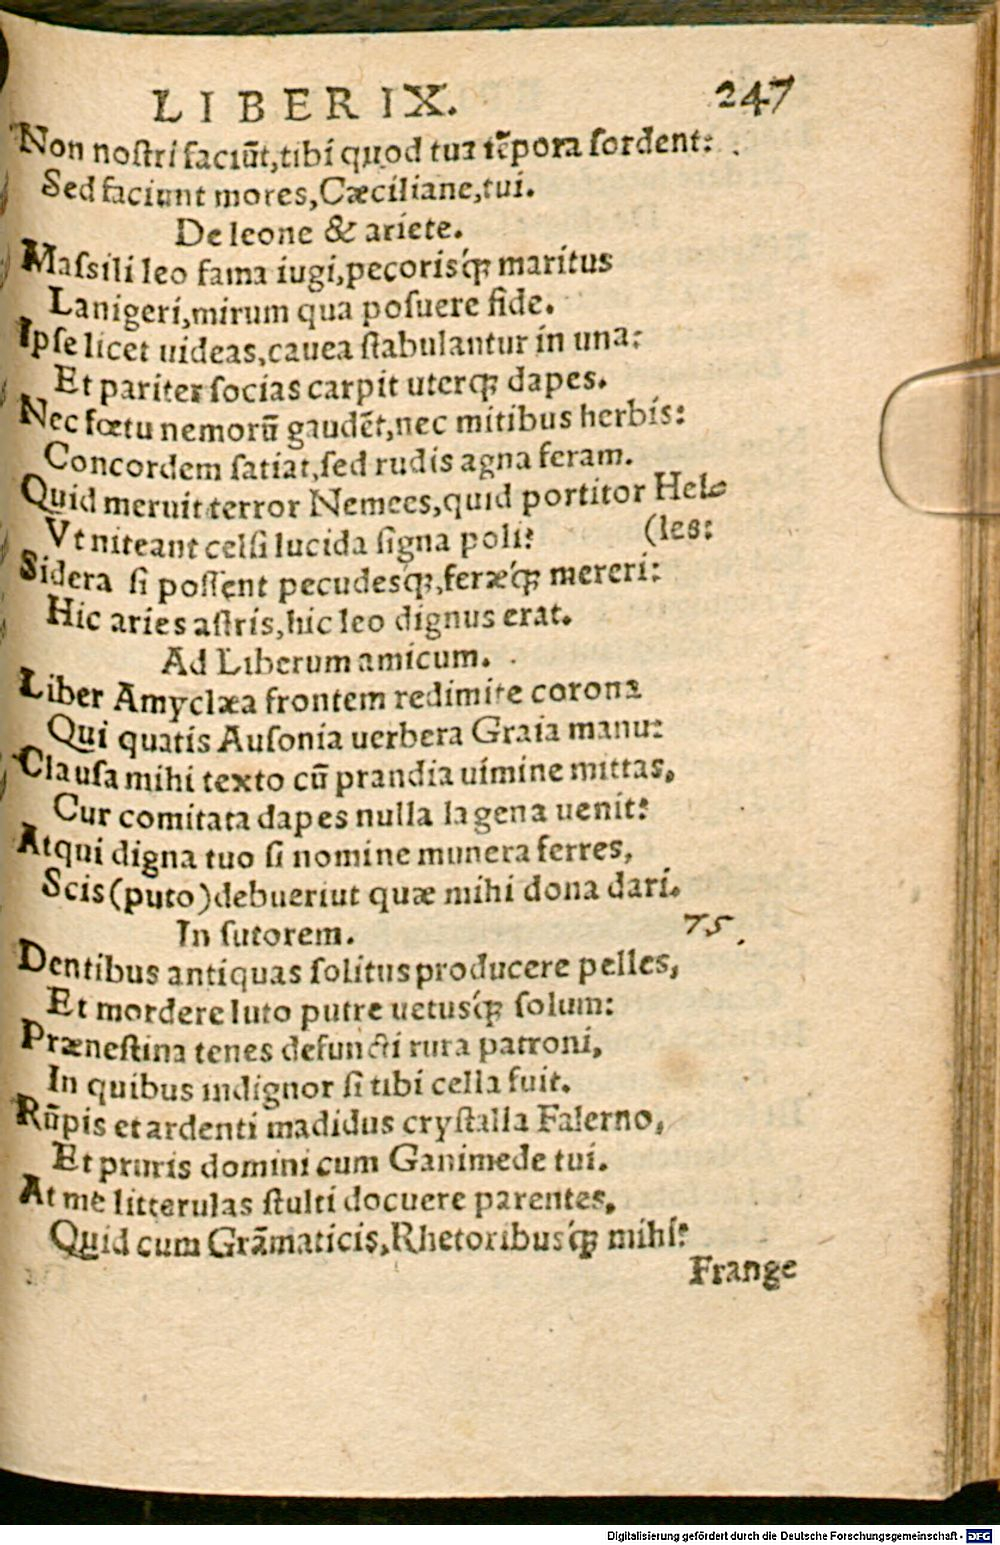 LIBER IX. 247
Non noſtri faciūt, tibi quod tua tēpora ſordent:
Sed faciunt mores, Cæciliane, tui.
De leone & ariete.
Maſsili leo fama iugi, pecorisq́; maritus
Lanigeri, mirum qua poſuere fide.
Ipſe licet uideas, cauea ſtabulantur in una:
Et pariter ſocias carpit uterq; dapes.
Nec fœtu nemorū gaudēt, nec mitibus herbis:
Concordem ſatiat, ſed rudis agna feram.
Quid meruit terror Nemees, quid portitor Hel-
Vt niteant celſi lucida ſigna poli? (les:
Sidera ſi poſſent pecudesq́;, feræq́; mereri:
Hic aries aſtris, hic leo dignus erat.
Ad Liberum amicum.
Liber Amyclæa frontem redimite corona
Qui quatis Auſonia uerbera Graia manu:
Clauſa mihi texto cū prandia uimine mittas,
Cur comitata dapes nulla lagena uenit?
Atqui digna tuo ſi nomine munera ferres,
Scis (puto) debueriut quæ mihi dona dari.
In ſutorem. 75.
Dentibus antiquas ſolitus producere pelles,
Et mordere luto putre uetusq́; ſolum:
Præneſtina tenes defuncti rura patroni,
In quibus indignor ſi tibi cella fuit.
Rūpis et ardenti madidus cryſtalla Falerno,
Et pruris domini cum Ganimede tui.
At me litterulas ſtulti docuere parentes,
Quid cum Grāmaticis, Rhetoribusq́; mihi?
Frange
Digitalisierung gefördert durch die Deutsche Forschungsgemeinschaft - DFG